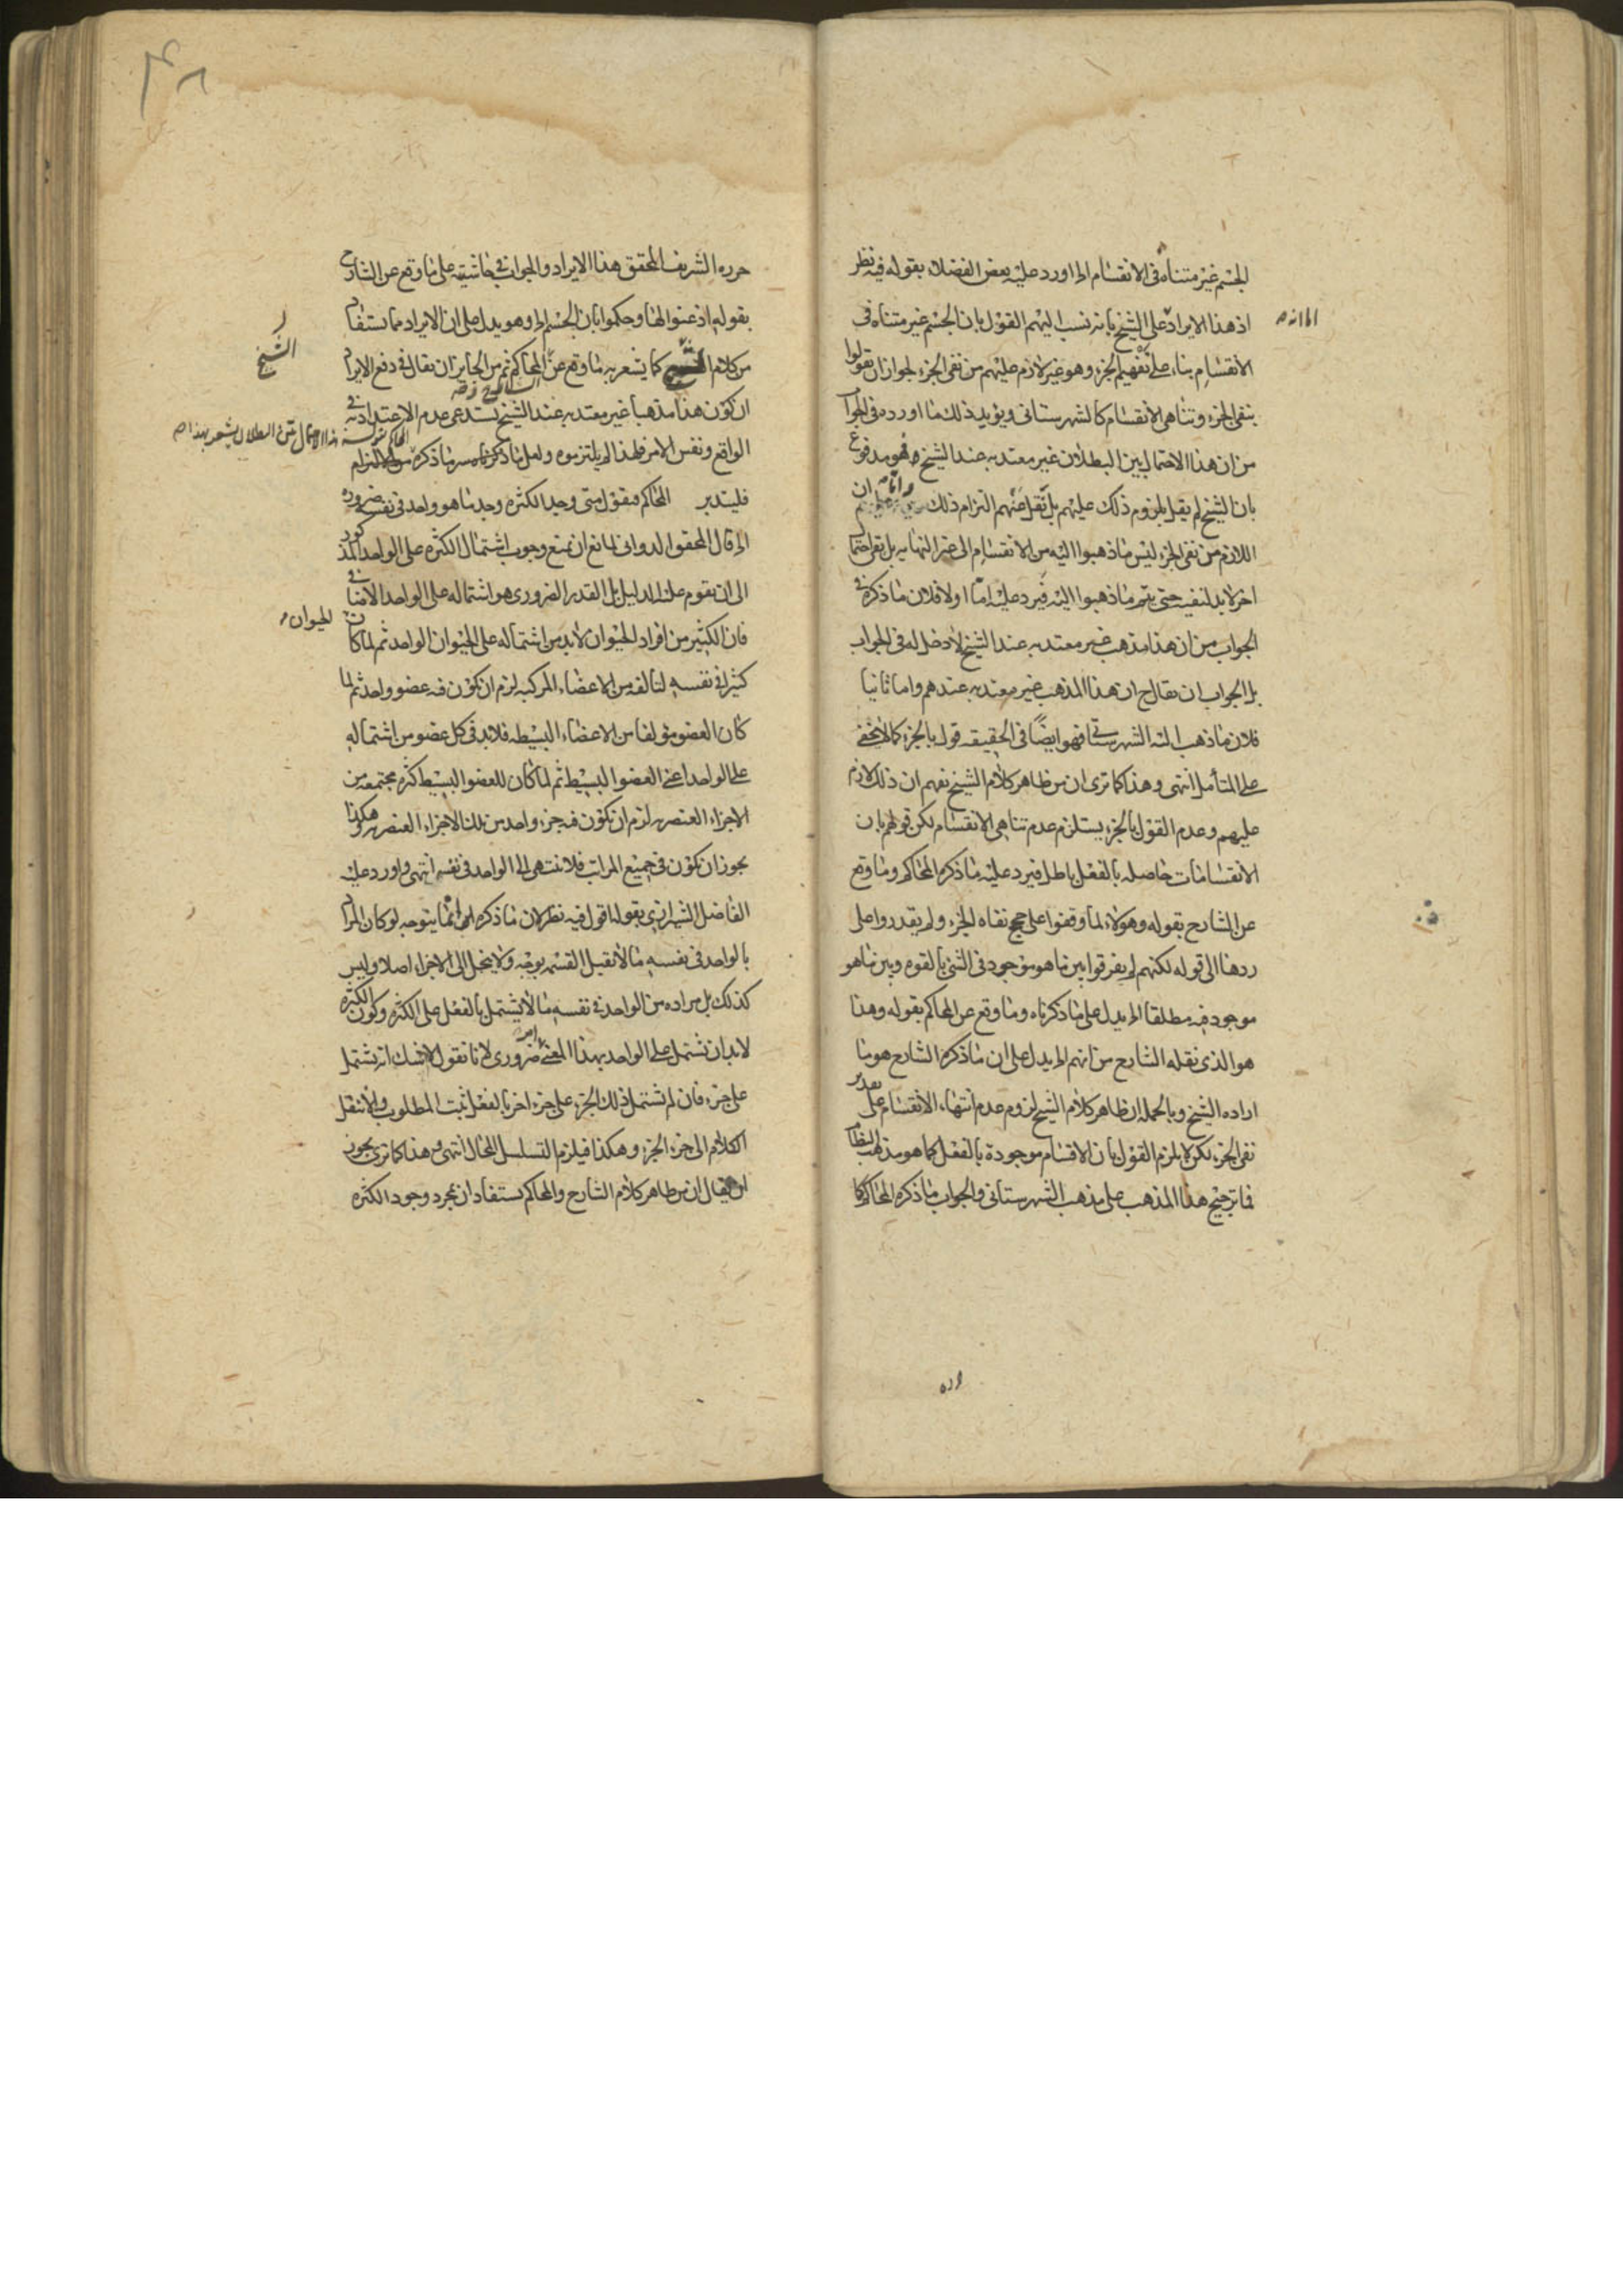 الجسم غير متناه فى الانقسام الخ اورد عليه بعض الفضلاء بقوله فيه نظر
اذ هذا الايراد على الشيخ بانه نسب اليهم القول بان الجسم غير متناه فى
الانقسام بناء على نفيهم الجزء وهو غير لازم عليهم من نفى الجزء لجواز ان يقولوا
بنفى الجزء وتناهى الانقسام كالشهرستانى ويؤيد ذلك ما اورده فى الجواب
من ان هذا الاحتمال بين البطلان غير معتد به عند الشيخ فهو مدفوع
بان الشيخ لم يقل بلزوم ذلك عليهم بل نقل عنهم التزام ذلك واما ان
اللازم من نفى الجزء ليس ما ذهبوا اليه من الانقسام الى غير النهايه بل بقى احتمال
اخر لابد لنفيه حتى يتم ما ذهبوا اليه فيرد عليه اما اولا فلان ما ذكره فى
الجواب من ان هذا مذهب غير معتد به عند الشيخ لا دخل له فى الجواب
بل الجواب ان يقال ح ان هذا المذهب غير معتد به عندهم واما ثانيا
فلان ما ذهب اليه الشهرستانى فهو ايضا فى الحقيقه قول بالجزء كما لا يخفى
على المتأمل انتهى وهذا كما ترى ان من ظاهر كلام الشيخ نفهم ان ذلك لازم
عليهم وعدم القول بالجزء يستلزم عدم تناهى الانقسام لكن قولهم بان
الانقسامات حاصله بالفعل باطل فيرد عليه ما ذكره المحاكم وما وقع
عن الشارح بقوله وهؤلاء لما وقفوا على حجج نفاه الجزء ولم يقدروا على
ردها الى قوله لكنهم لم يفرقوا بين ما هو موجود فى الشئ بالقوه وبين ما هو
موجود فيه مطلقا الخ يدل على ما ذكرناه وما وقع عن المحاكم بقوله وهذا
هو الذى نقله الشارح من انهم الخ يدل على ان ما ذكره الشارح هو ما
اراده الشيخ وبالجمله ان ظاهر كلام الشيخ لزوم عدم انتهاء الانقسام على تقدير
نفى الجزء لكن لا يلزم القول بان الاقسام موجودة بالفعل كما هو مذهب النظام
فما ترجيح هذا المذهب على مذهب الشهرستانى والجواب ما ذكره المحاكم كما
حرره الشريف المحقق هذا الايراد والجواب فى حاشيته على ما وقع عن الشارح
بقوله اذعنوا لها وحكموا بان الجسم الخ وهو يدل على ان الايراد مما يستفاد
من كلام الشيخ كما يشعر به ما وقع عن المحاكم ثم من الجايز ان يقال فى دفع الايراد
ان كون هذا مذهبا غير معتد به عند الشيخ يستدعى عدم الاعتداد به فى
الواقع ونفس الامر فلهذا لم يلتزموه ولعل ما ذكرناه سر ما ذكره
فليتدبر المحاكم فنقول متى وجد الكثره وجد ما هو واحد فى نفسه ضروره
الخ قال المحقق الدوانى لمانع ان يمنع وجوب اشتمال الكثره على الواحد المذكور
الى ان يقوم عليه الدليل بل القدر الضرورى هو اشتماله على الواحد الاضافى
فان الكثير من افراد الحيوان لابد من اشتماله على الحيوان الواحد ثم لما كان الحيوان
كثيرا فى نفسه لتالفه من الاعضاء المركبه لزم ان يكون فيه عضو واحد ثم لما
كان العضو مؤلفا من الاعضاء البسيطه فلابد فى كل عضو من اشتماله
على الواحد اعنى العضو البسيط ثم لما كان للعضو البسيط كثره مجتمعه من
الاجزاء العنصريه لزم ان يكون فيه جزء واحد من تلك الاجزاء العنصريه وهكذا
يجوز ان يكون فى جميع المراتب فلا ينتهى الى الواحد فى نفسه انتهى واورد عليه
الفاضل الشيرازى بقوله اقول فيه نظر لان ما ذكره انما يتوجه لو كان المراد
بالواحد فى نفسه ما لا يقبل القسمه بوجه ولا ينحل الى الاجزاء اصلا وليس
كذلك بل مراده من الواحد فى نفسه ما لا يشتمل بالفعل على الكثره وكون الكثره
لابد ان تشتمل على الواحد بهذا المعنى امر ضرورى لانا نقول لا شك انه يشتمل
على جزء فان لم يشتمل ذلك الجزء على جزء اخر بالفعل ثبت المطلوب والا ننقل
الكلام الى جزء الجزء وهكذا فيلزم التسلسل المحال انتهى وهذا كما ترى يجوز
ان يقال ان من ظاهر كلام الشارح والمحاكم يستفاد ان مجرد وجود الكثره